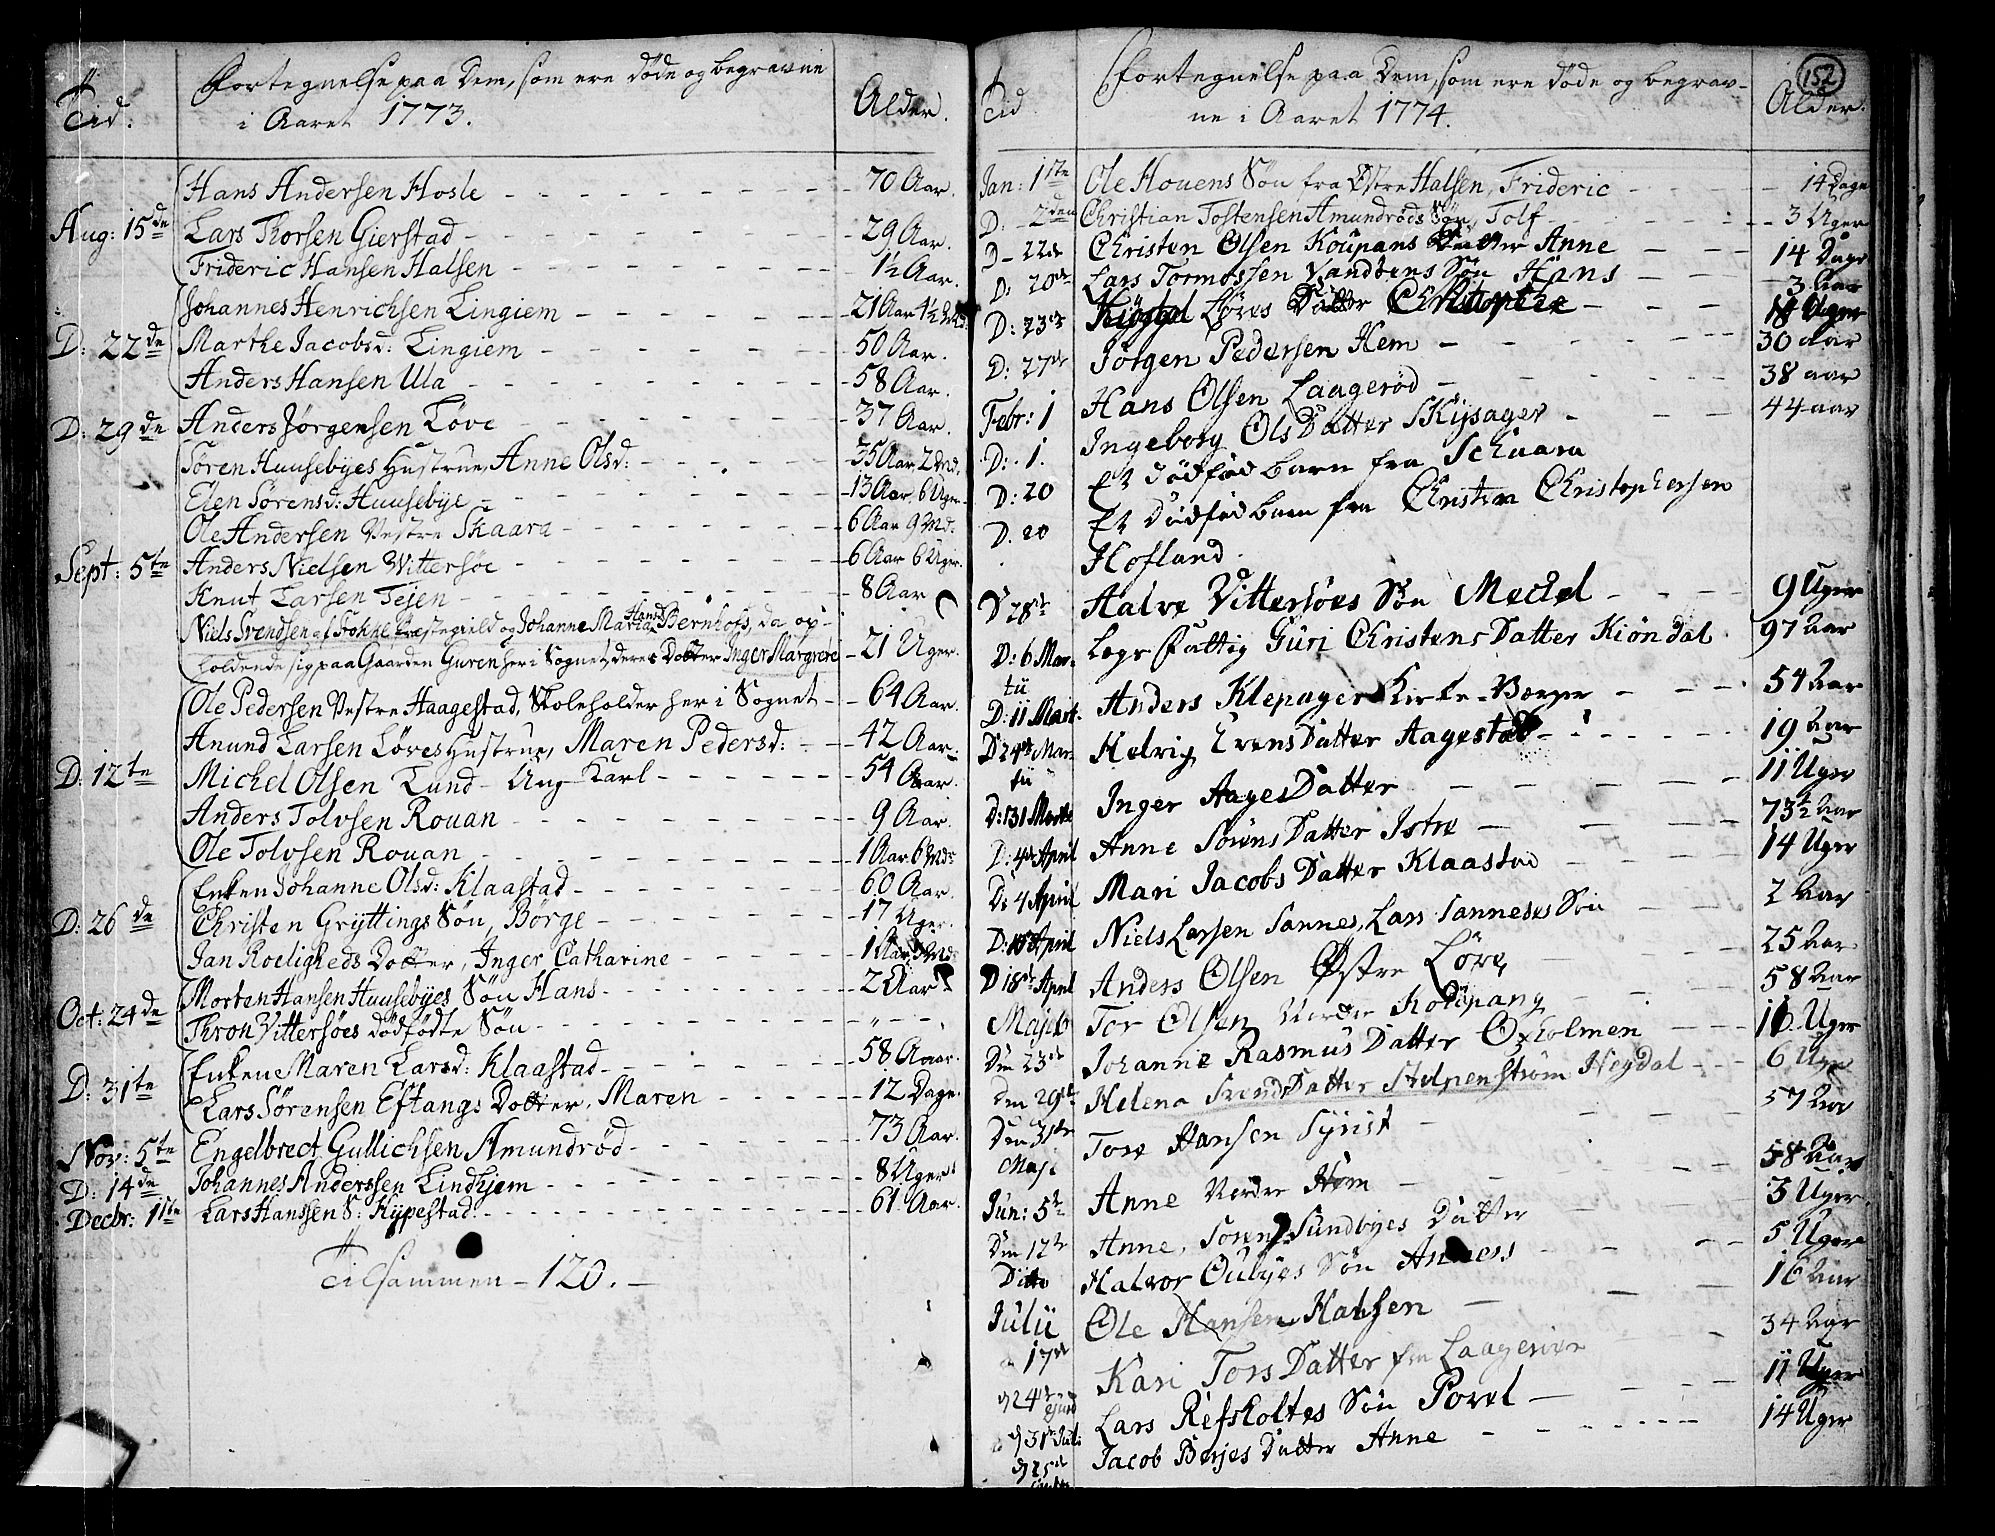 Fortegnelse paa Dem, som ere døde og begravne
Tid. i Aaret 1773. Alder.
Hans Andersen Hosle - 70 Aar.
Aug: 15de Lars Thorsen Gierstad - 29 Aar.
Frideric Hansen Halsen - 1½ Aar.
Johannes Henrichsen Lingiem - 21 Aar
D: 22de Marthe Jacobsd: Lingiem - 50 Aar.
Anders Hansen Ula - 58 Aar.
D: 29de Anders Jørgensen Løve - 37 Aar.
Søren Huusebyes Hustrue, Anne Olsd: - 35 Aar 2 Md.
Elen Sørensd: Huusebye - 13 Aar 6 Uger
Ole Andersen Vestre Skaara - 6 Aar 9 Md:
Sept: 5te Anders Nielsen Wittersøe - 6 Aar 6 Uger.
Knut Larsen Tejen - 8 Aar
Niels Svendsen af Præstegield og Johanne Maria Hansd Bernhofs, da op-
holdende sig paa Gaarden Guren her i Sognet, deres Dotter Inger Margrete - 21 Uger.
Ole Pedersen Vestre Haagestad, Skoleholder her i Sognet - 64 Aar.
Anund Larsen Løves Hustrue, Maren Pedersd: - 42 Aar.
D: 12te Michel Olsen Lund - Ung Karl - 54 Aar.
Anders Tolvsen Rouan - 9 Aar.
Ole Tolvsen Rouan - 1 Aar 6 Mdr
Enken Johanne Olsd: Klaastad - 60 Aar.
D: 26de Christen Gryttings Søn, Børge - 17 Uger.
Jan Roeligheds Dotter, Inger Catharine - 1 Aar
Oct: 24de Morten Hansen Huusebyes Søn Hans - 2 Aar
Thron Vittersøes dødfødte Søn -
D: 31te Enken Maren Larsd: Klaastad - 58 Aar.
Lars Sørensen Eftangs Dotter, Maren - 12 Dage.
Nov: 5te Engelbrect Gullichsen Amundrød - 73 Aar.
D: 14de Johannes Anderssen Lindhjem - 8 Uger
Decbr: 11te Lars Hanssen S: Kypestad - 61 Aar.
Tilsammen - 120. -
152
Fortegnelse paa Dem, som ere døde og begrav-
Tid ne i Aaret 1774. Alder.
Jan: 1ste Ole Houens Søn fra Østre Halsen, Frideric - 14 Dage
D. 2den Christian Tostensen Amundrøds Søn, Tolf - 3 Uger
D - 22de Christen Olsen Koupans Datter Anne - 14 Dage
D: 20de Lars Tormossen Søn Hans - 3 Aar
D: 23de Løves Datter - Uger
D: 27de Jörgen Pedersen Hem - 30 aar
Febr: 1 Hans Olsen Laagerød - 38 aar
D: 1. Ingeborg OlsDatter Skijsager - 44 aar
D: 20 Et dødfød barn fra Schaara
D. 20 Et Dødfød barn fra Christen Christophersen
Hofland.
D 28de Halve Vittersöes Sön Mechel - 9 Uger
D: 6 Mar-
tii Lægs Fattig Guri ChristensDatter Kiöndal 97 Aar
D: 11 Mart. Anders Klepager Kirke-Værger - 54 Aar
D 24de Mar-
tii Helvig EvensDatter Aagestad - 19 Aar
D: 31 Martii Inger AagesDatter - 11 Uger
D: 4de April Anne SörensDatter Istre - 73½ Aar
D: 4 April Mari Jacobs Datter Klaastad - 14 Uger
D: April Niels Larsen Sannes, Lars Sanneses Sön - 2 Aar
D 18de April Anders Olsen Østre Löve - 25 Aar
Maji Tor Olsen Nordre - 58 Aar
Den 23de Johanne Rasmus Datter Oxholmen - 16 Uger
Den 29de Helena SvendsDatter Heydal - 6 Uger
Den 31te
Maji Tore Hansen - 57 Aar
Jun: 5te Anne Nordre Hem - 58 Aar
Den 12te Anne, Sören Sundbyes Datter - 3 Uger
Ditto Halvor Oulyes Sön - 5 Uger
Julii
17de Ole Hansen Halsen - 16 Aar
24de Kari TorsDatter fra - 34 Aar
31te Julii Lars Refsholtes Sön Povel - 11 Uger
Jacob Berjes Datter Anne - 14 Uger